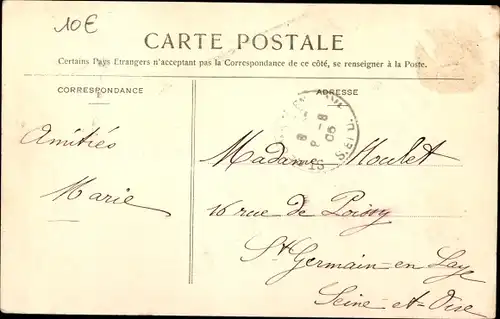 10€
CARTE POSTALE
Certains Pays Etrangers n'acceptent pas la Correspondance de ce côté, se renseigner à la Poste.
CORRESPONDANCE
ADRESSE
Amitiés
Marie
Madame Moulet
16 rue de Poissy
St Germain-en-Laye
Seine-et-Oise